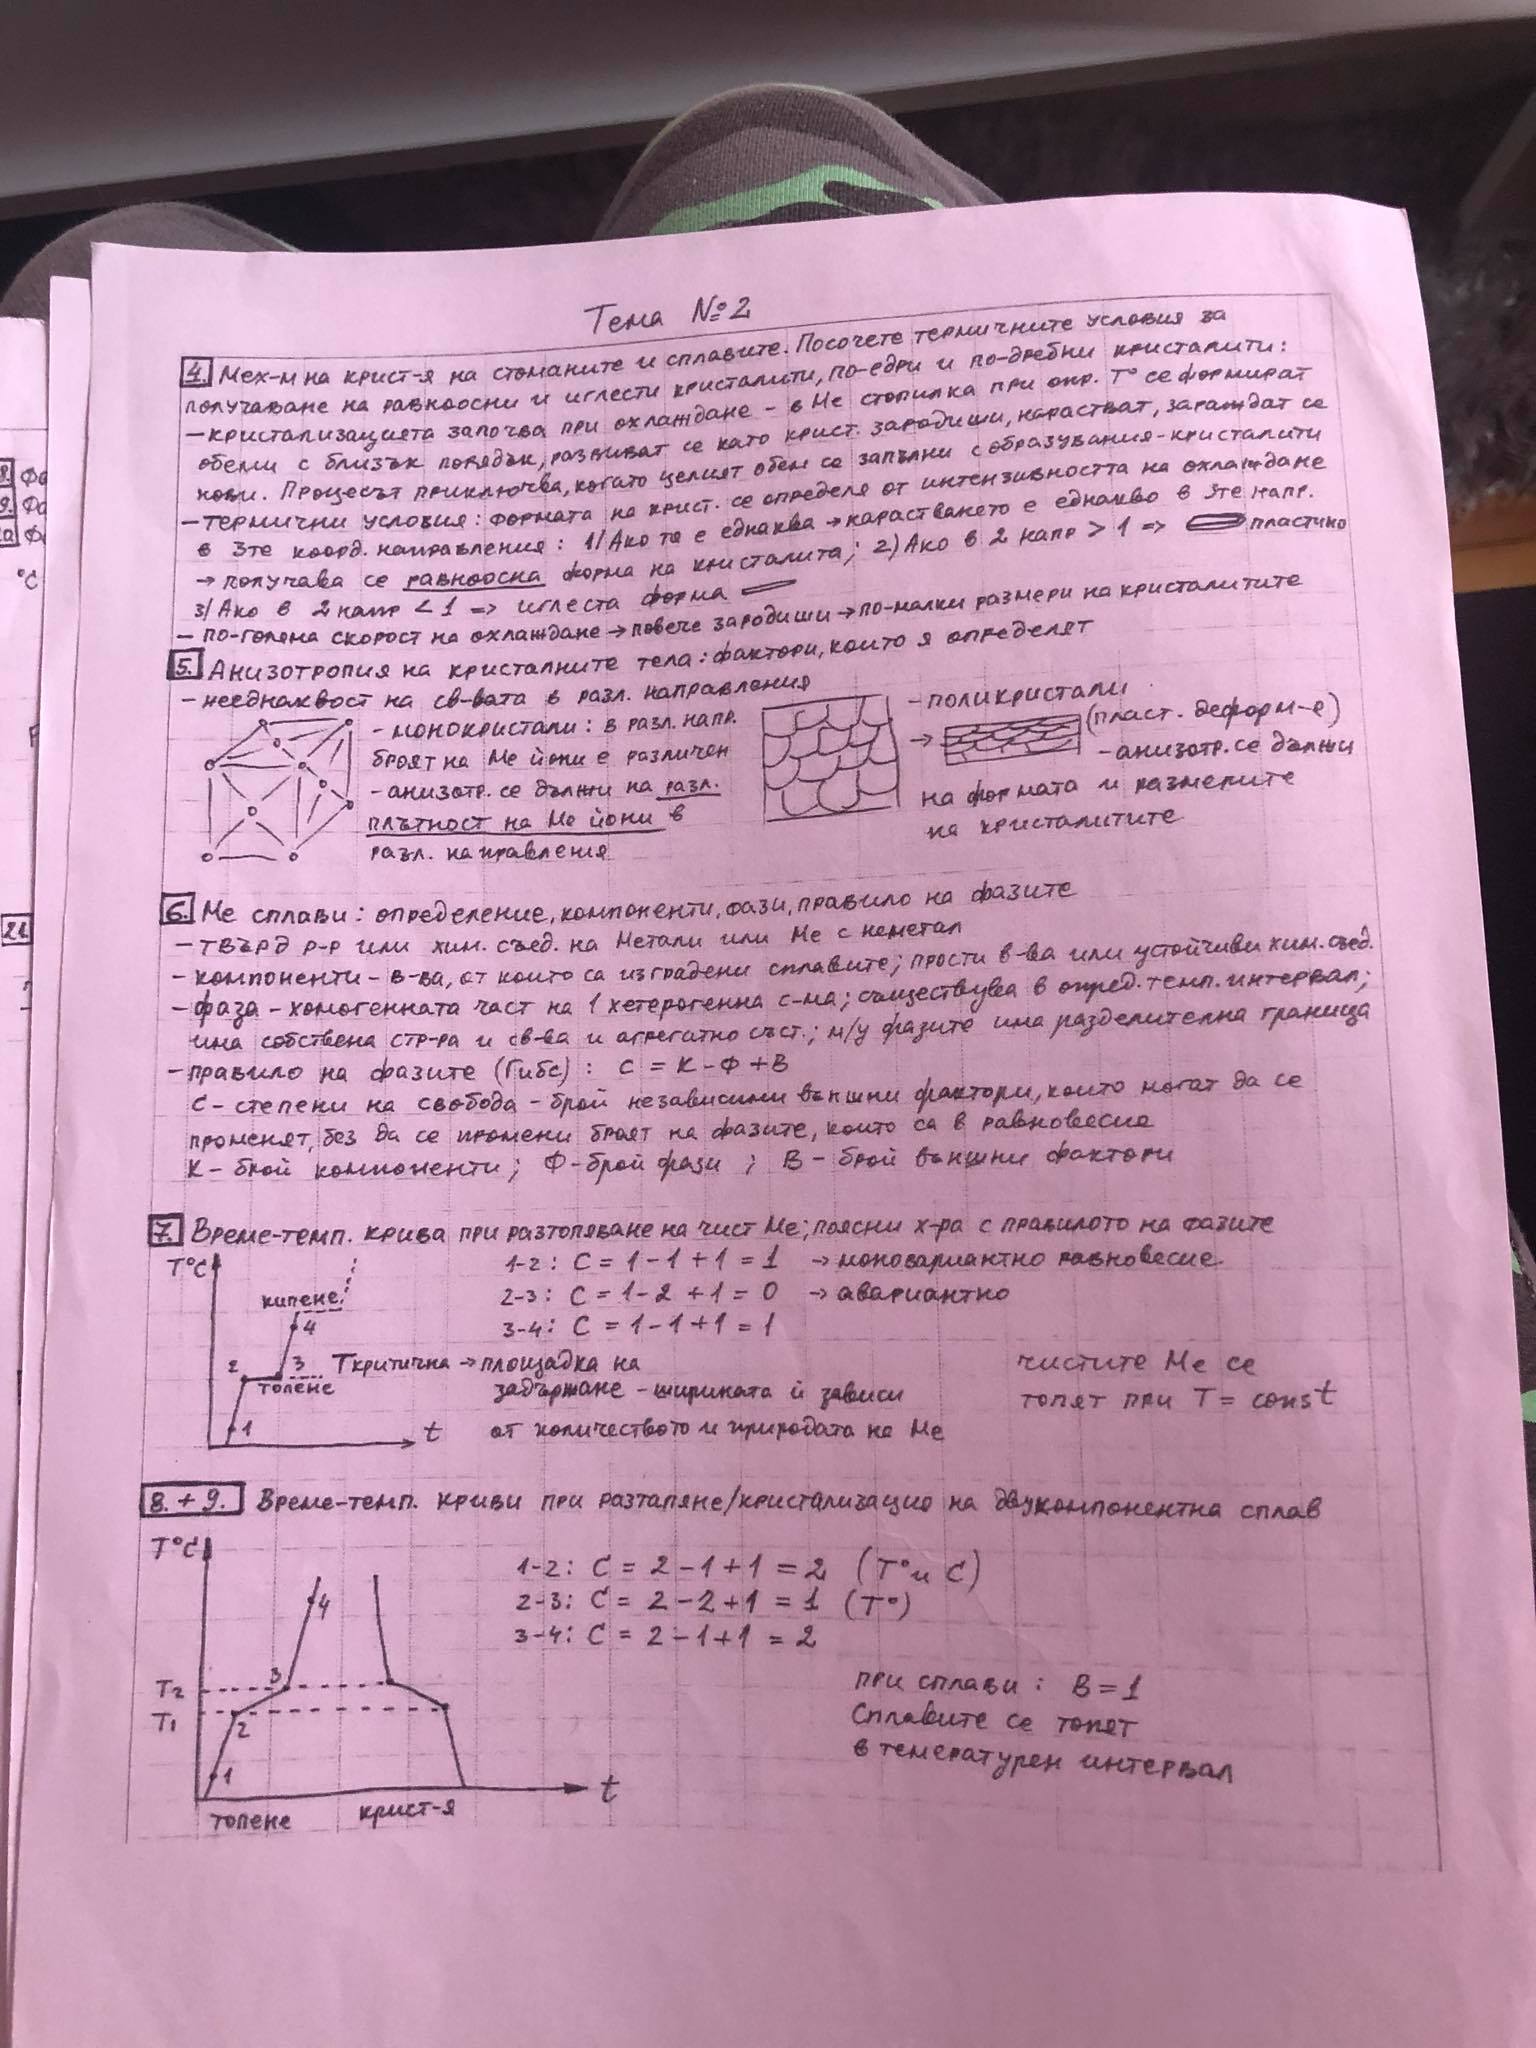 Тема №2
4. Мех-м на крист-я на стоманите и сплавите. Посочете термичните условия за
получаване на равноосни и иглести кристалити, по-едри и по-дребни кристалити:
– кристализацията започва при охлаждане – в Ме стопилка при опр. T° се формират
обеми с близък порядък, развиват се като крист. зародиши, нарастват, зараждат се
нови. Процесът приключва, когато целият обем се запълни с образувания-кристалити
– термични условия: формата на крист. се определя от интензивността на охлаждане
в 3те коорд. направления: 1/ Ако тя е еднаква → нарастването е еднакво в 3те напр.
→ получава се равноосна форма на кристалита; 2) Ако в 2 напр > 1 => пластично
3/ Ако в 2 напр < 1 => иглеста форма
– по-голяма скорост на охлаждане → повече зародиши → по-малки размери на кристалитите
5. Анизотропия на кристалните тела: фактори, които я определят
– нееднаквост на св-вата в разл. направления
– монокристали: в разл. напр.
броят на Ме йони е различен
– анизотр. се дължи на разл.
плътност на Ме йони в
разл. направления
– поликристали
→ (пласт. деформ-е)
– анизотр. се дължи
на формата и размерите
на кристалитите
6. Ме сплави: определение, компоненти, фази, правило на фазите
– твърд р-р или хим. съед. на метали или Ме с неметал
– компоненти – в-ва, от които са изградени сплавите; прости в-ва или устойчиви хим. съед.
– фаза – хомогенната част на 1 хетерогенна с-ма; съществува в опред. темп. интервал;
има собствена стр-ра и св-ва и агрегатно съст.; м/у фазите има разделителна граница
– правило на фазите (Гибс): C = К – Ф + В
C – степени на свобода – брой независими външни фактори, които могат да се
променят, без да се промени броят на фазите, които са в равновесие
К – брой компоненти; Ф – брой фази; В – брой външни фактори
7. Време-темп. крива при разтопяване на чист Ме; поясни х-ра с правилото на фазите
T°C
кипене
4
2
3
топене
1
t
1-2: C = 1 – 1 + 1 = 1 → моновариантно равновесие
2-3: C = 1 – 2 + 1 = 0 → авариантно
3-4: C = 1 – 1 + 1 = 1
Tкритична → площадка на
задържане – ширината ѝ зависи
от количеството и природата на Ме
чистите Ме се
топят при T = const
8. + 9. Време-темп. криви при разтапяне/кристализацио на двукомпонентна сплав
T°C
4
3
T2
T1
2
1
t
топене крист-я
1-2: C = 2 – 1 + 1 = 2 (T° и C)
2-3: C = 2 – 2 + 1 = 1 (T°)
3-4: C = 2 – 1 + 1 = 2
при сплави: В = 1
Сплавите се топят
в темературен интервал
8. Фа
9. Фа
Ф
°C
21